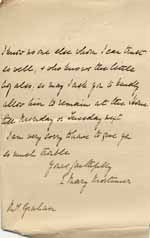 I know no one else whom I can trust
so well, & who knows the little
boy also, so may I ask you to kindly
allow him to remain at the Home
till Monday or Tuesday next
I am very sorry to have to give you
so much trouble
Yours faithfully
Mary Mortimer
Mr Graham